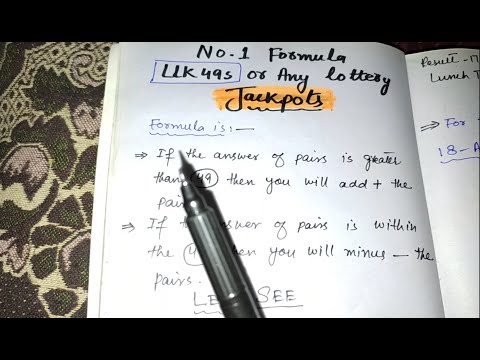 No.1 Formula
UK49s or Any lottery
Jackpots
Formula is:—
⇒ If the answer of pairs is greater
than 49 then you will add + the
⇒ If answer of pairs is within
the then you will minus — the
pairs.
SEE
Result -
Lunch
⇒ For
18-A